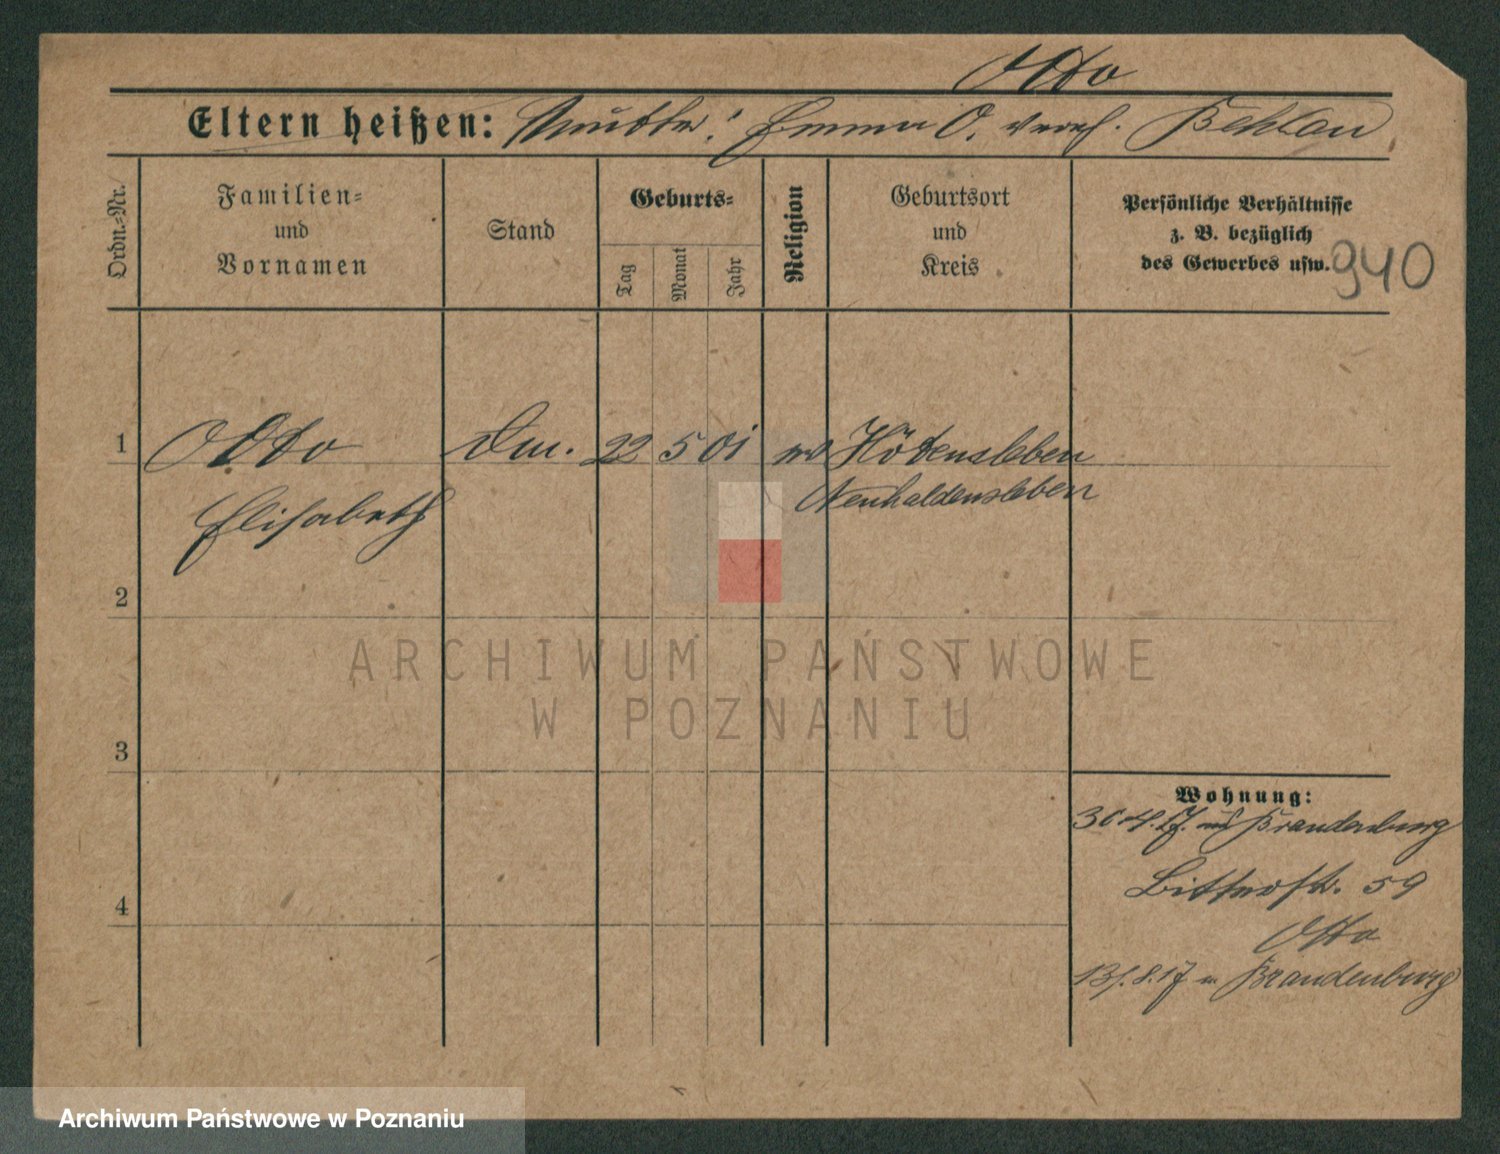 Otto
Eltern heißen: Mutter: Emma O. verehl.
Ordn.=Nr.
Familien=
und
Vornamen
Stand
Geburts=
Tag
Monat
Jahr
Religion
Geburtsort
und
Kreis
Persönliche Verhältnisse
z. B. bezüglich
des Gewerbes usw.
940
1
Otto
22 5 01
Hötensleben
Elisabeth
Neuhaldensleben
2
ARCHIWUM PAŃSTWOWE
W POZNANIU
3
Wohnung:
Brandenburg
59
Otto
4
8.17 n Brandenburg
Archiwum Państwowe w Poznaniu